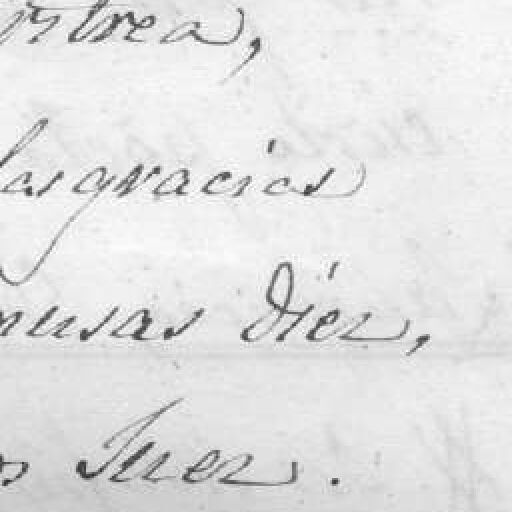 las gracias
musas diez,
Juez.